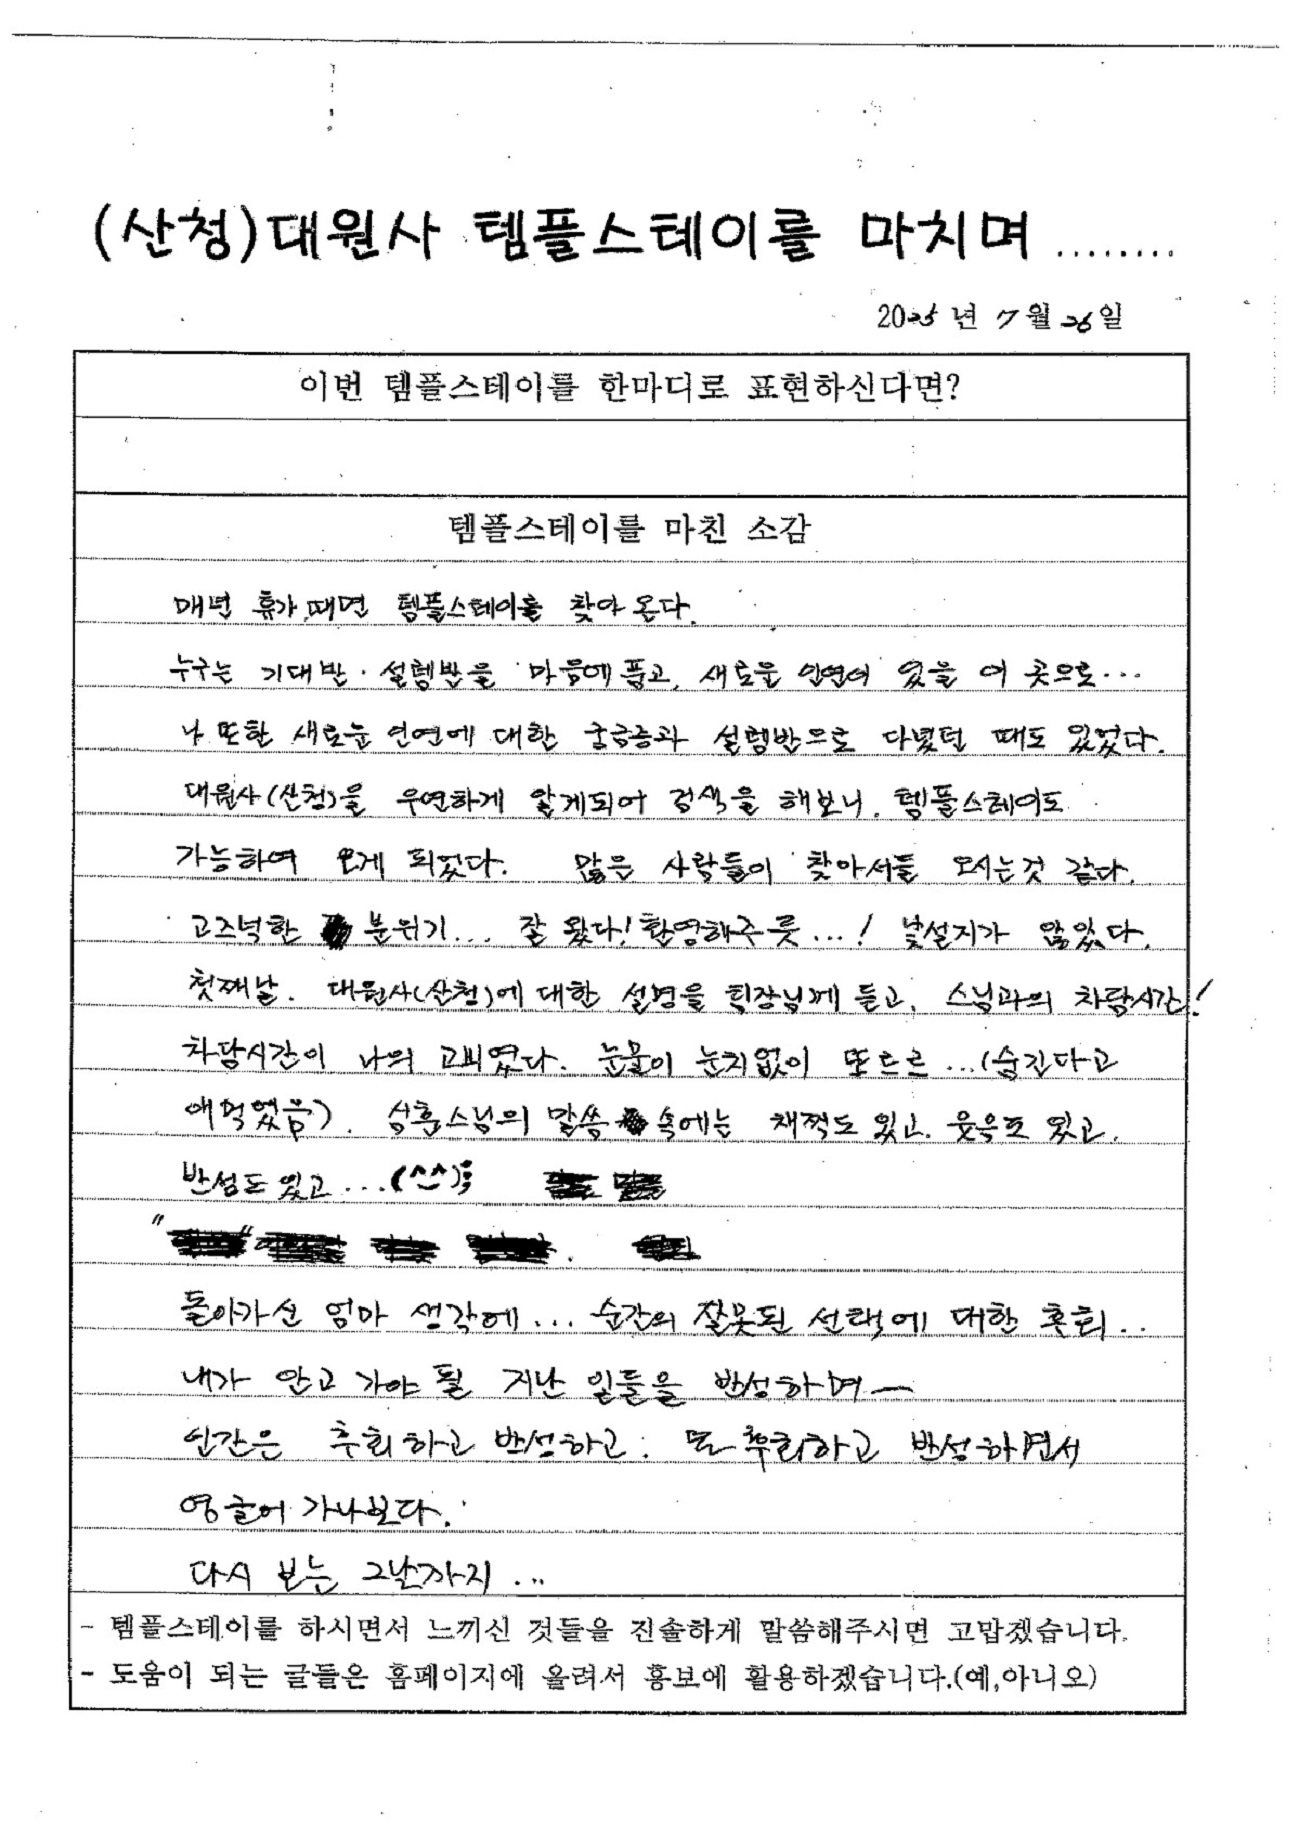 (산청)대원사 템플스테이를 마치며.........
2025년 7월 26일
이번 템플스테이를 한마디로 표현하신다면?
템플스테이를 마친 소감
매년 휴가때면 템플스테이를 찾아 온다.
누구는 기대반·설렘반을 마음에 품고, 새로운 인연이 있을 이 곳으로...
나 또한 새로운 인연에 대한 궁금증과 설렘반으로 다녔던 때도 있었다.
대원사(산청)을 우연하게 알게되어 검색을 해보니, 템플스테이도
가능하여 오게 되었다. 많은 사람들이 찾아서들 오시는것 같다.
고즈넉한 분위기... 잘 왔다! 환영해주듯...! 낯설지가 않았다.
첫째날. 대원사(산청)에 대한 설명을 팀장님께 듣고, 스님과의 차담시간!
차담시간이 나의 고비였다. 눈물이 눈치없이 또르르...(숨긴다고
애먹었음). 스님의 말씀 속에는 채찍도 있고. 웃음도 있고,
반성도 있고...(^^);
돌아가신 엄마 생각에... 순간의 잘못된 선택에 대한 후회..
내가 안고 가야 될 지난 일들을 반성하며—
인간은 후회하고 반성하고. 또 후회하고 반성하면서
영글어 가나보다.
다시 보는 그날까지...
- 템플스테이를 하시면서 느끼신 것들을 진솔하게 말씀해주시면 고맙겠습니다.
- 도움이 되는 글들은 홈페이지에 올려서 홍보에 활용하겠습니다.(예,아니오)